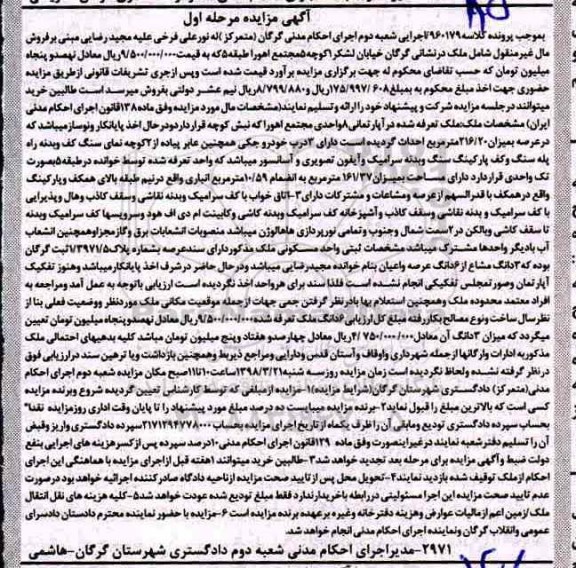 آگهی مزایده مرحله اول
بموجب پرونده کلاسه ۹۶۰۱۷۹ اجرایی شعبه دوم اجرای احکام مدنی گرگان (متمرکز) له نورعلی فرخی علیه مجید رضایی مبنی بر فروش
مال غیر منقول شامل ملک در نشانی گرگان خیابان لشکر ۱ کوچه ۵ مجتمع اهورا طبقه ۵ که به قیمت ۹/۵۰۰/۰۰۰/۰۰۰ ریال معادل نهصد و پنجاه
میلیون تومان که حسب تقاضای محکوم له جهت برگزاری مزایده برآورد قیمت شده است وپس ازجری تشریفات قانونی ازطریق مزایده
حضوری جهت اخذ مبلغ محکوم به بمبلغ ۱۷۵/۹۹۷/۶۰۸ ریال و ۸/۷۹۹/۸۸۰ ریال نیم عشر دولتی بفروش میرسد است طالبین خرید
میتوانند درجلسه مزایده شرکت و پیشنهاد خود را ارائه وتسلیم نمایند(مشخصات مال مورد مزایده وفق ماده ۱۳۸ قانون اجرای احکام مدنی
ایران) مشخصات ملک:ملک تعرفه شده در آپارتمانی ۸ واحدی مجتمع اهورا که نبش کوچه قراردارد ودرحال اخذ پایانکار ونوساز میباشد که
درعرصه بمیزان ۲۱۶/۲۰ مترمربع احداث گردیده است دارای ۲ درب خودرو جکی همچنین عابر پیاده از ۲ کوچه نمای سنگ کف وبدنه راه
پله سنگ وکف پارکینگ سنگ وبدنه سرامیک وآیفون تصویری و آسانسور میباشد که واحد تعرفه شده توسط خوانده درطبقه ۵ بصورت
تک واحدی قراردارد دارای مساحت بمیزان ۱۶۱/۳۷ مترمربع به انضمام ۱۰/۵۹ مترمربع انباری واقع درنیم طبقه بالای همکف وپارکینگ
واقع درهمکف با قدرالسهم از عرصه ومشاعات و مشترکات دارای ۳-اتاق خواب با کف سرامیک وبدنه نقاشی وسقف کاذب وهال وپذیرایی
با کف سرامیک و بدنه نقاشی وسقف کاذب و آشپزخانه کف سرامیک وبدنه کاشی وکابینت ام دی اف هود وسرویسها کف سرامیک وبدنه
تا سقف کاشی وبالکن در ۲ سمت شمال وجنوب وتمامی نورپردازی هاهالوژن میباشد منصوبات انشعابات برق وگازمجزاوهمچنین انشعاب
آب بادیگر واحدها مشترک میباشد مشخصات ثبتی واحد مسکونی ملک مذکور دارای سندعرصه بشماره پلاک ۱/۳۹۷۱/۵ ثبت گرگان
بوده که ۳ دانگ مشاع از ۶ دانگ عرصه واعیان بنام خوانده مجیدرضایی میباشد ودرحال حاضر درشرف اخذ پایانکار میباشد وهنوز تفکیک
آپارتمان وصورتمجلس تفکیکی انجام نشده است فلذا سند برای هرواحد اخذ نگردیده است ارزیابی باتوجه به عمل آمد ومراجعه به
افراد معتمد محدوده ملک وهمچنین استعلام بها بادرنظر گرفتن جمیع جهات ازجمله موقعیت مکانی ملک موردنظر ووضعیت فعلی بنا از
نظر سال ساخت ونوع مصالح بکاررفته مبلغ کل ارزیابی ۶ دانگ ملک تعرفه شده ۹/۵۰۰/۰۰۰/۰۰۰ ریال معادل نهصدوپنجاه میلیون تومان تعیین
میگردد که میزان ۳ دانگ آن معادل ۴/۷۵۰/۰۰۰/۰۰۰ ریال معادل چهارصدو هفتاد وپنج میلیون تومان میباشد کلیه بدهیهای احتمالی ملک
مذکور به ادارات وارگانها ازجمله شهرداری واوقاف وآستان قدس ودارایی ومراجع ذیربط وهمچنین بازداشت ویا ترهین سند درارزیابی فوق
در نظر گرفته نشده ولحاظ نگردیده است زمان مزایده روز سه شنبه ۱۳۹۸/۳/۲۱ ساعت ۱۰ تا ۱۱ صبح مکان مزایده شعبه دوم اجرای احکام
مدنی(متمرکز) دادگستری شهرستان گرگان(شرایط مزایده) ۱-مزایده ازمبلغی که توسط کارشناس تعیین گردیده شروع وبرنده مزایده
کسی است که بالاترین مبلغ را قبول نماید ۲-برنده مزایده میبایست ده درصد مبلغ مورد پیشنهاد را تا پایان وقت اداری روزمزایده نقدا"
بحساب سپرده دادگستری تودیع ومابقی آن را ظرف یکماه از تاریخ اجرای مزایده بحساب ۲۱۷۱۲۹۴۷۷۸۰۰۰ سپرده دادگستری واریز وفیش
آن را تسلیم دفترشعبه نمایند درغیراینصورت وفق ماده ۱۲۹ قانون اجرای احکام مدنی ۱۰ درصد سپرده پس ازکسر هزینه های اجرایی بنفع
دولت ضبط وآگهی مزایده برای مرحله بعد تجدید خواهد شد ۳-طالبین خرید میتوانند ۱ هفته قبل ازاجرای مزایده با هماهنگی این اجرای
احکام ازملک توقیف شده بازدید نمایند ۴-تحویل محل پس از تایید صحت مزایده ازناحیه دادگاه صادرکننده اجرائیه خواهد بود درصورت
عدم تایید صحت مزایده این اجرا مسئولیتی دررابطه باخریدارندارد فقط مبلغ تودیع شده عودت خواهد شد ۵-کلیه هزینه های نقل انتقال
ملک/زمین اعم ازمالیات عوارض وهزینه دفترخانه وغیره برعهده برنده مزایده است ۶-مزایده با حضور نماینده محترم دادستان دادسرای
عمومی وانقلاب گرگان ونماینده اجرای احکام مدنی انجام خواهد شد.
۲۹۷۱-مدیراجرای احکام مدنی شعبه دوم دادگستری شهرستان گرگان-هاشمی